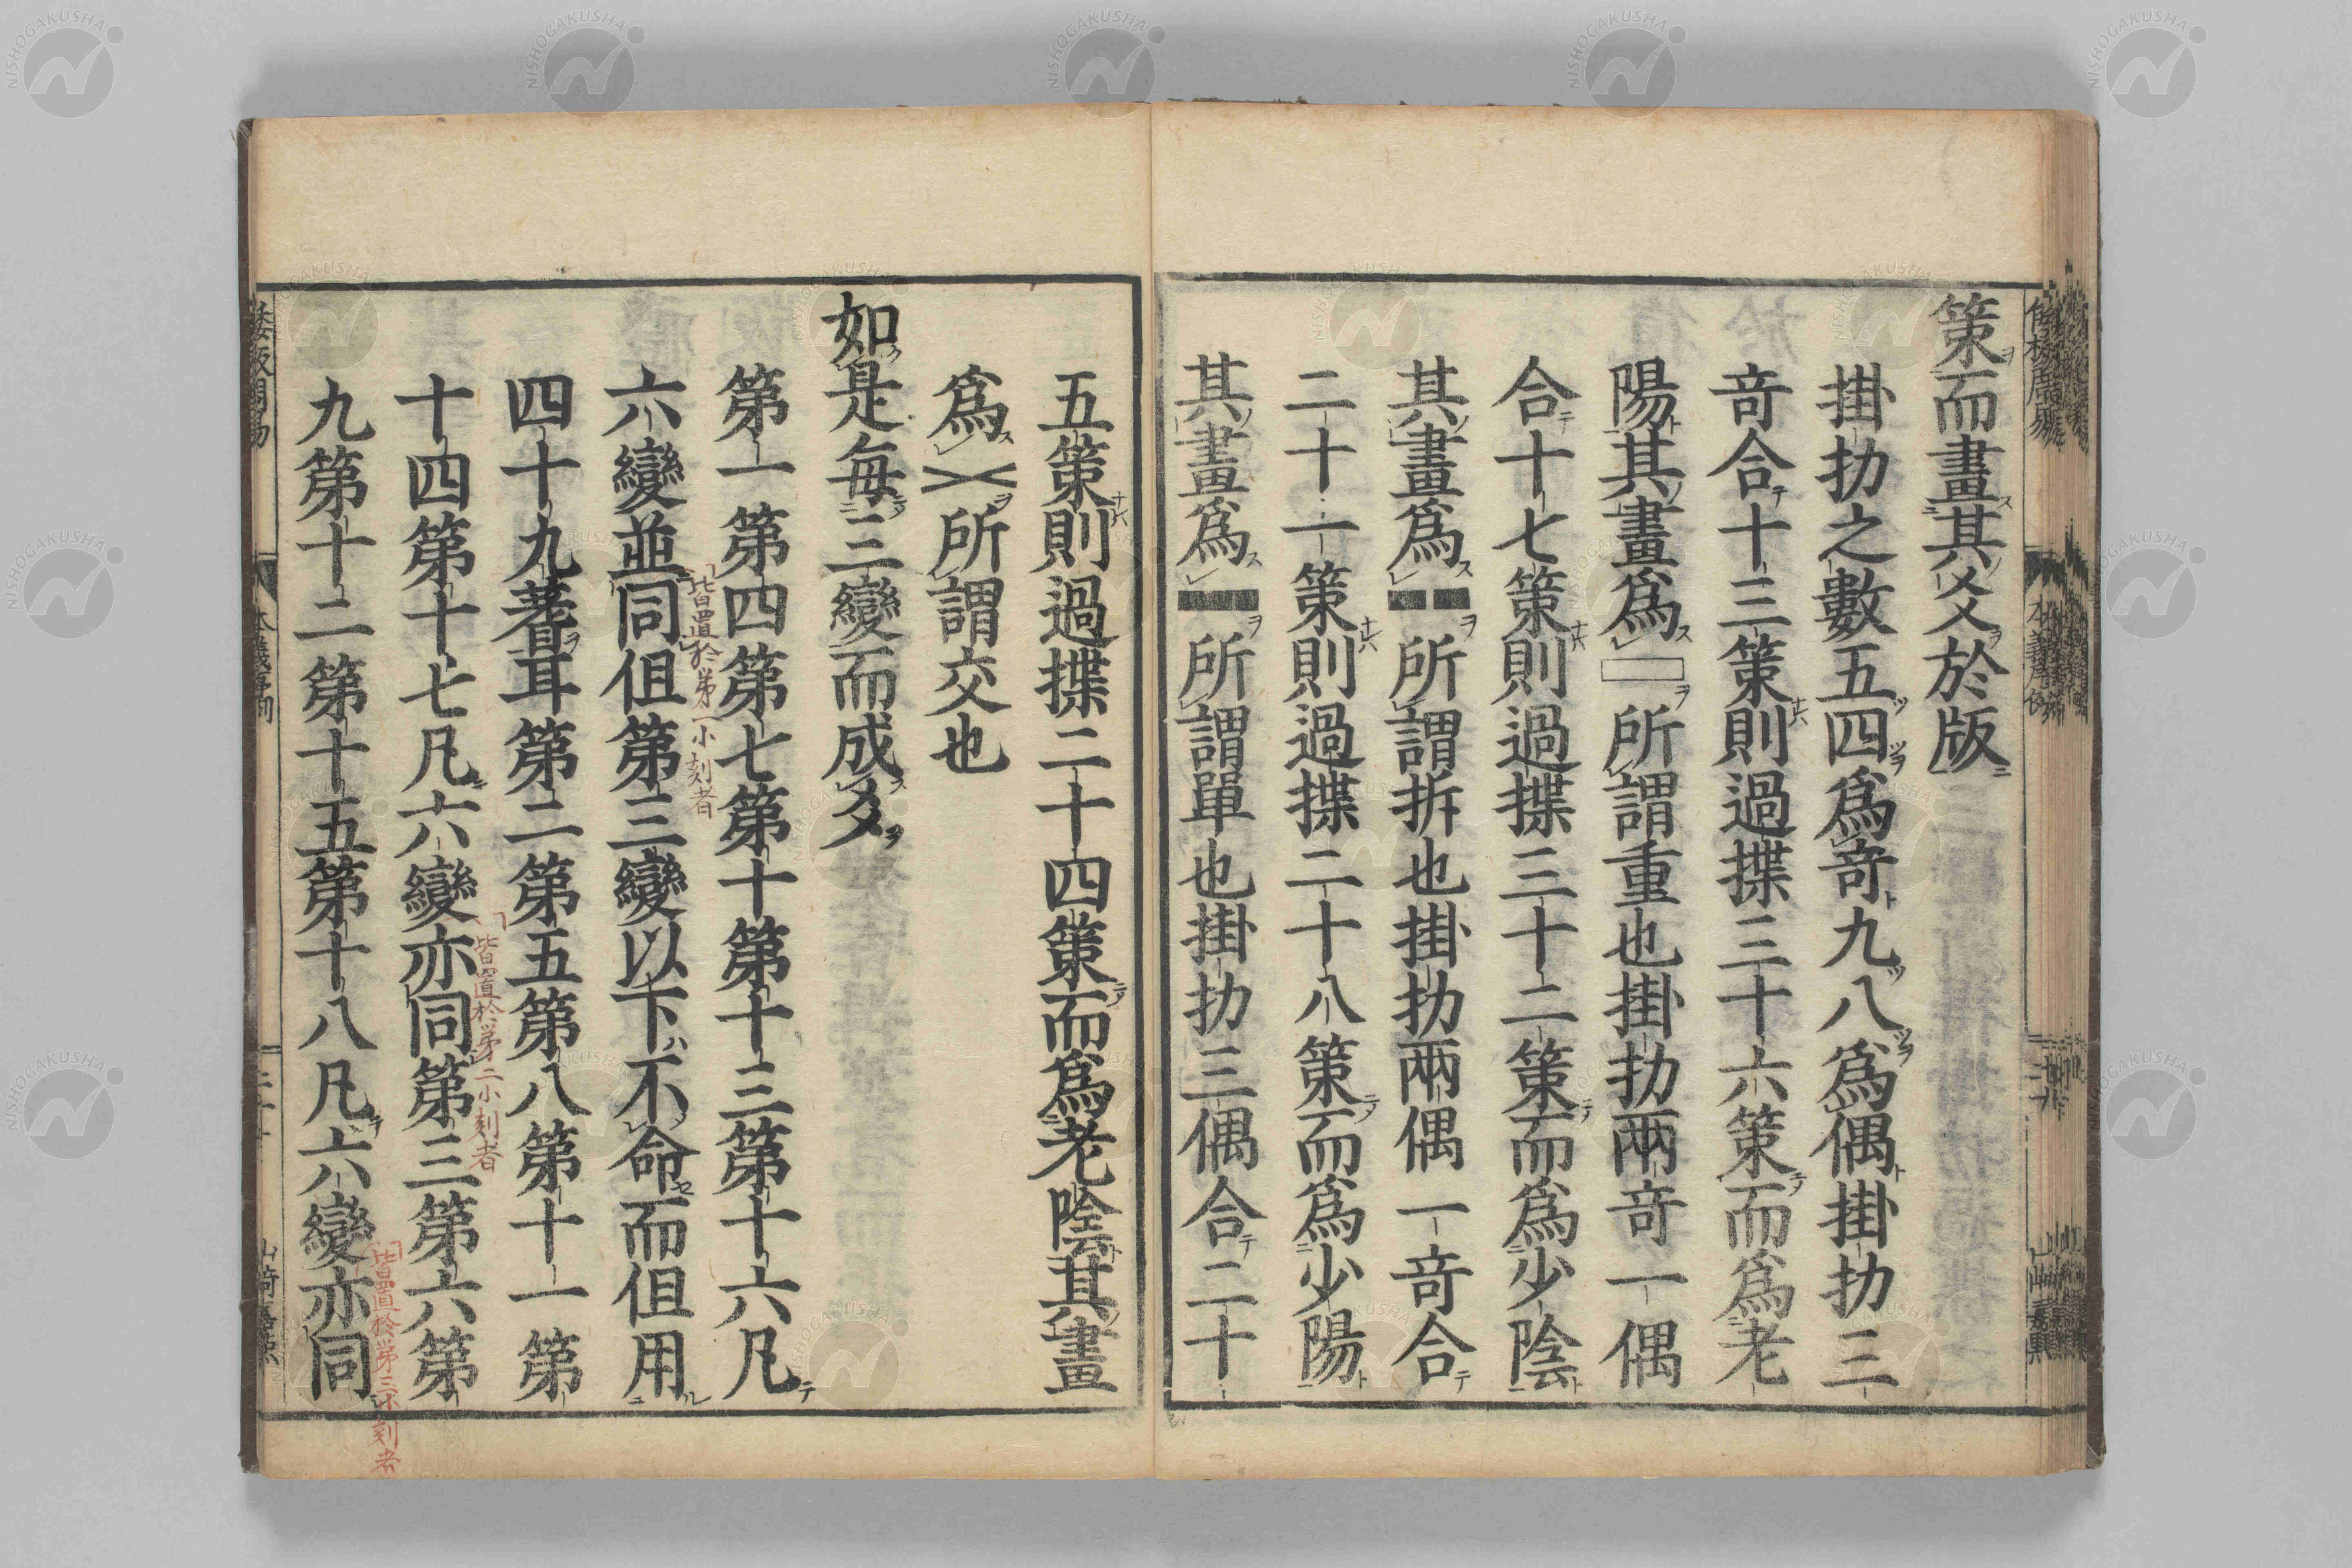 策而畫其爻於版
掛扐之數五四爲竒九八爲偶掛扐三
竒合十三策則過揲三十六策而爲老
陽其畫爲□所謂重也掛扐兩竒一偶
合十七策則過揲三十二策而爲少陰
其畫爲⚋所謂拆也掛扐兩偶一竒合
二十一策則過揲二十八策而爲少陽
其畫爲⚊所謂單也掛扐三偶合二十
五策則過揲二十四策而爲老陰其畫
爲㐅所謂交也
如是每三變而成爻
第一第四第七第十第十三第十六凡
皆置於第一小刻者
六變並同但第三變以下不命而但用
四十九蓍耳第二第五第八第十一第
皆置於第二小刻者
十四第十七凡六變亦同第三第六第
皆置於第三小刻者
九第十二第十五第十八凡六變亦同
NISHOGAKUSHA